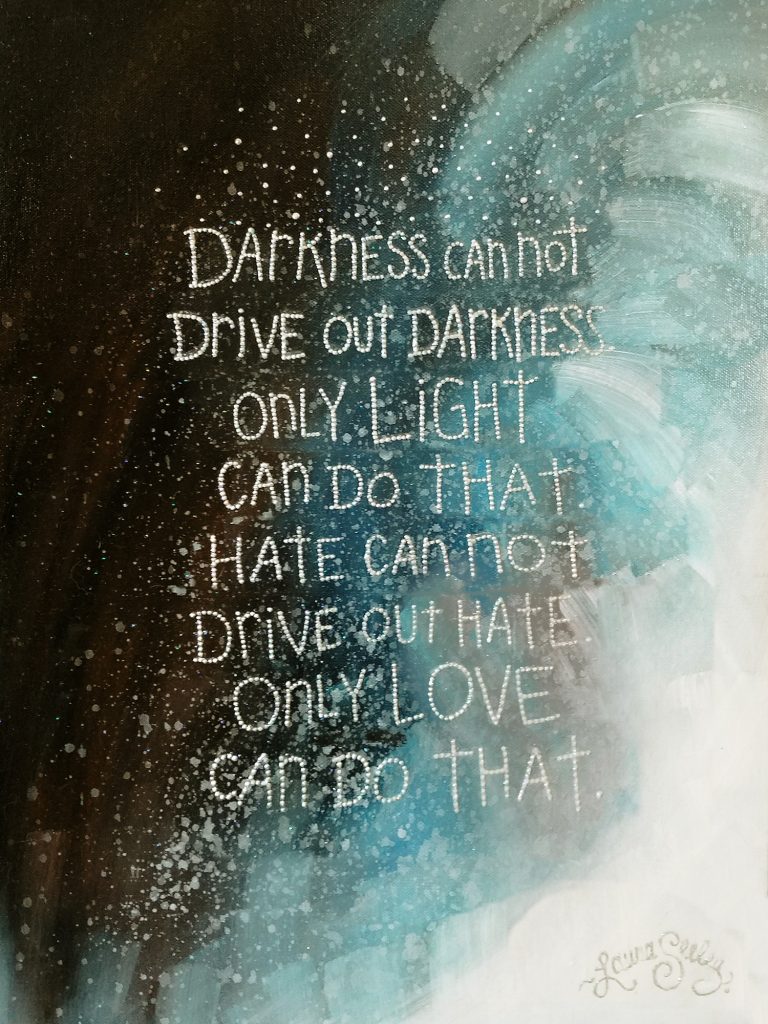 DARKNESS CAN not
DRIVE out DARKNESS.
only LIGHT
CAN DO THAT.
HATE CAN not
DRIVE out HATE.
ONLY LOVE
CAN DO THAT.
~Laura Seeley.